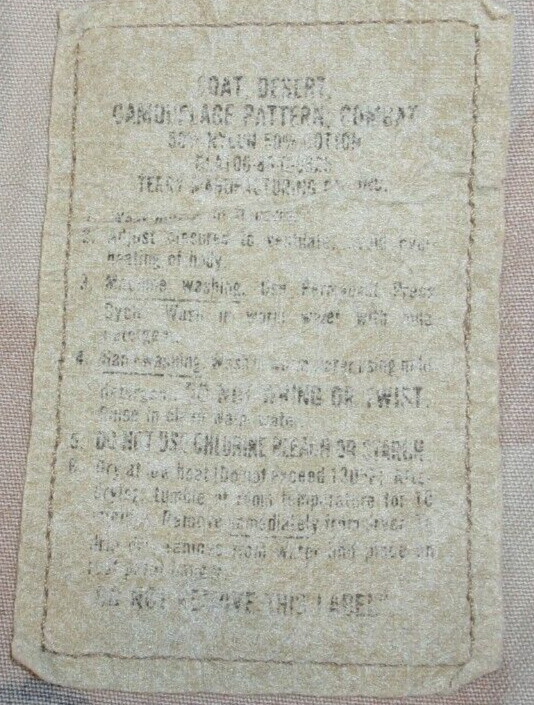 COAT, DESERT,
CAMOUFLAGE PATTERN, COMBAT
50% NYLON 50% COTTON
TERRY MANUFACTURING
1. in
2. Adjust closures to ventilate, avoid over-
heating of body.
3. Machine washing. Use Permanent Press
Cycle. Wash in warm water with mild
detergent.
4. Handwashing. Wash in warm water using mild
detergent. DO NOT WRING OR TWIST.
Rinse in clean warm water.
5. DO NOT USE CHLORINE BLEACH OR STARCH
6. Dry at low heat (Do not exceed 130°F). After
drying, tumble at room temperature for 10
Remove immediately from dryer. To
drip dry, remove from water and place on
rust proof hanger.
"DO NOT REMOVE THIS LABEL"